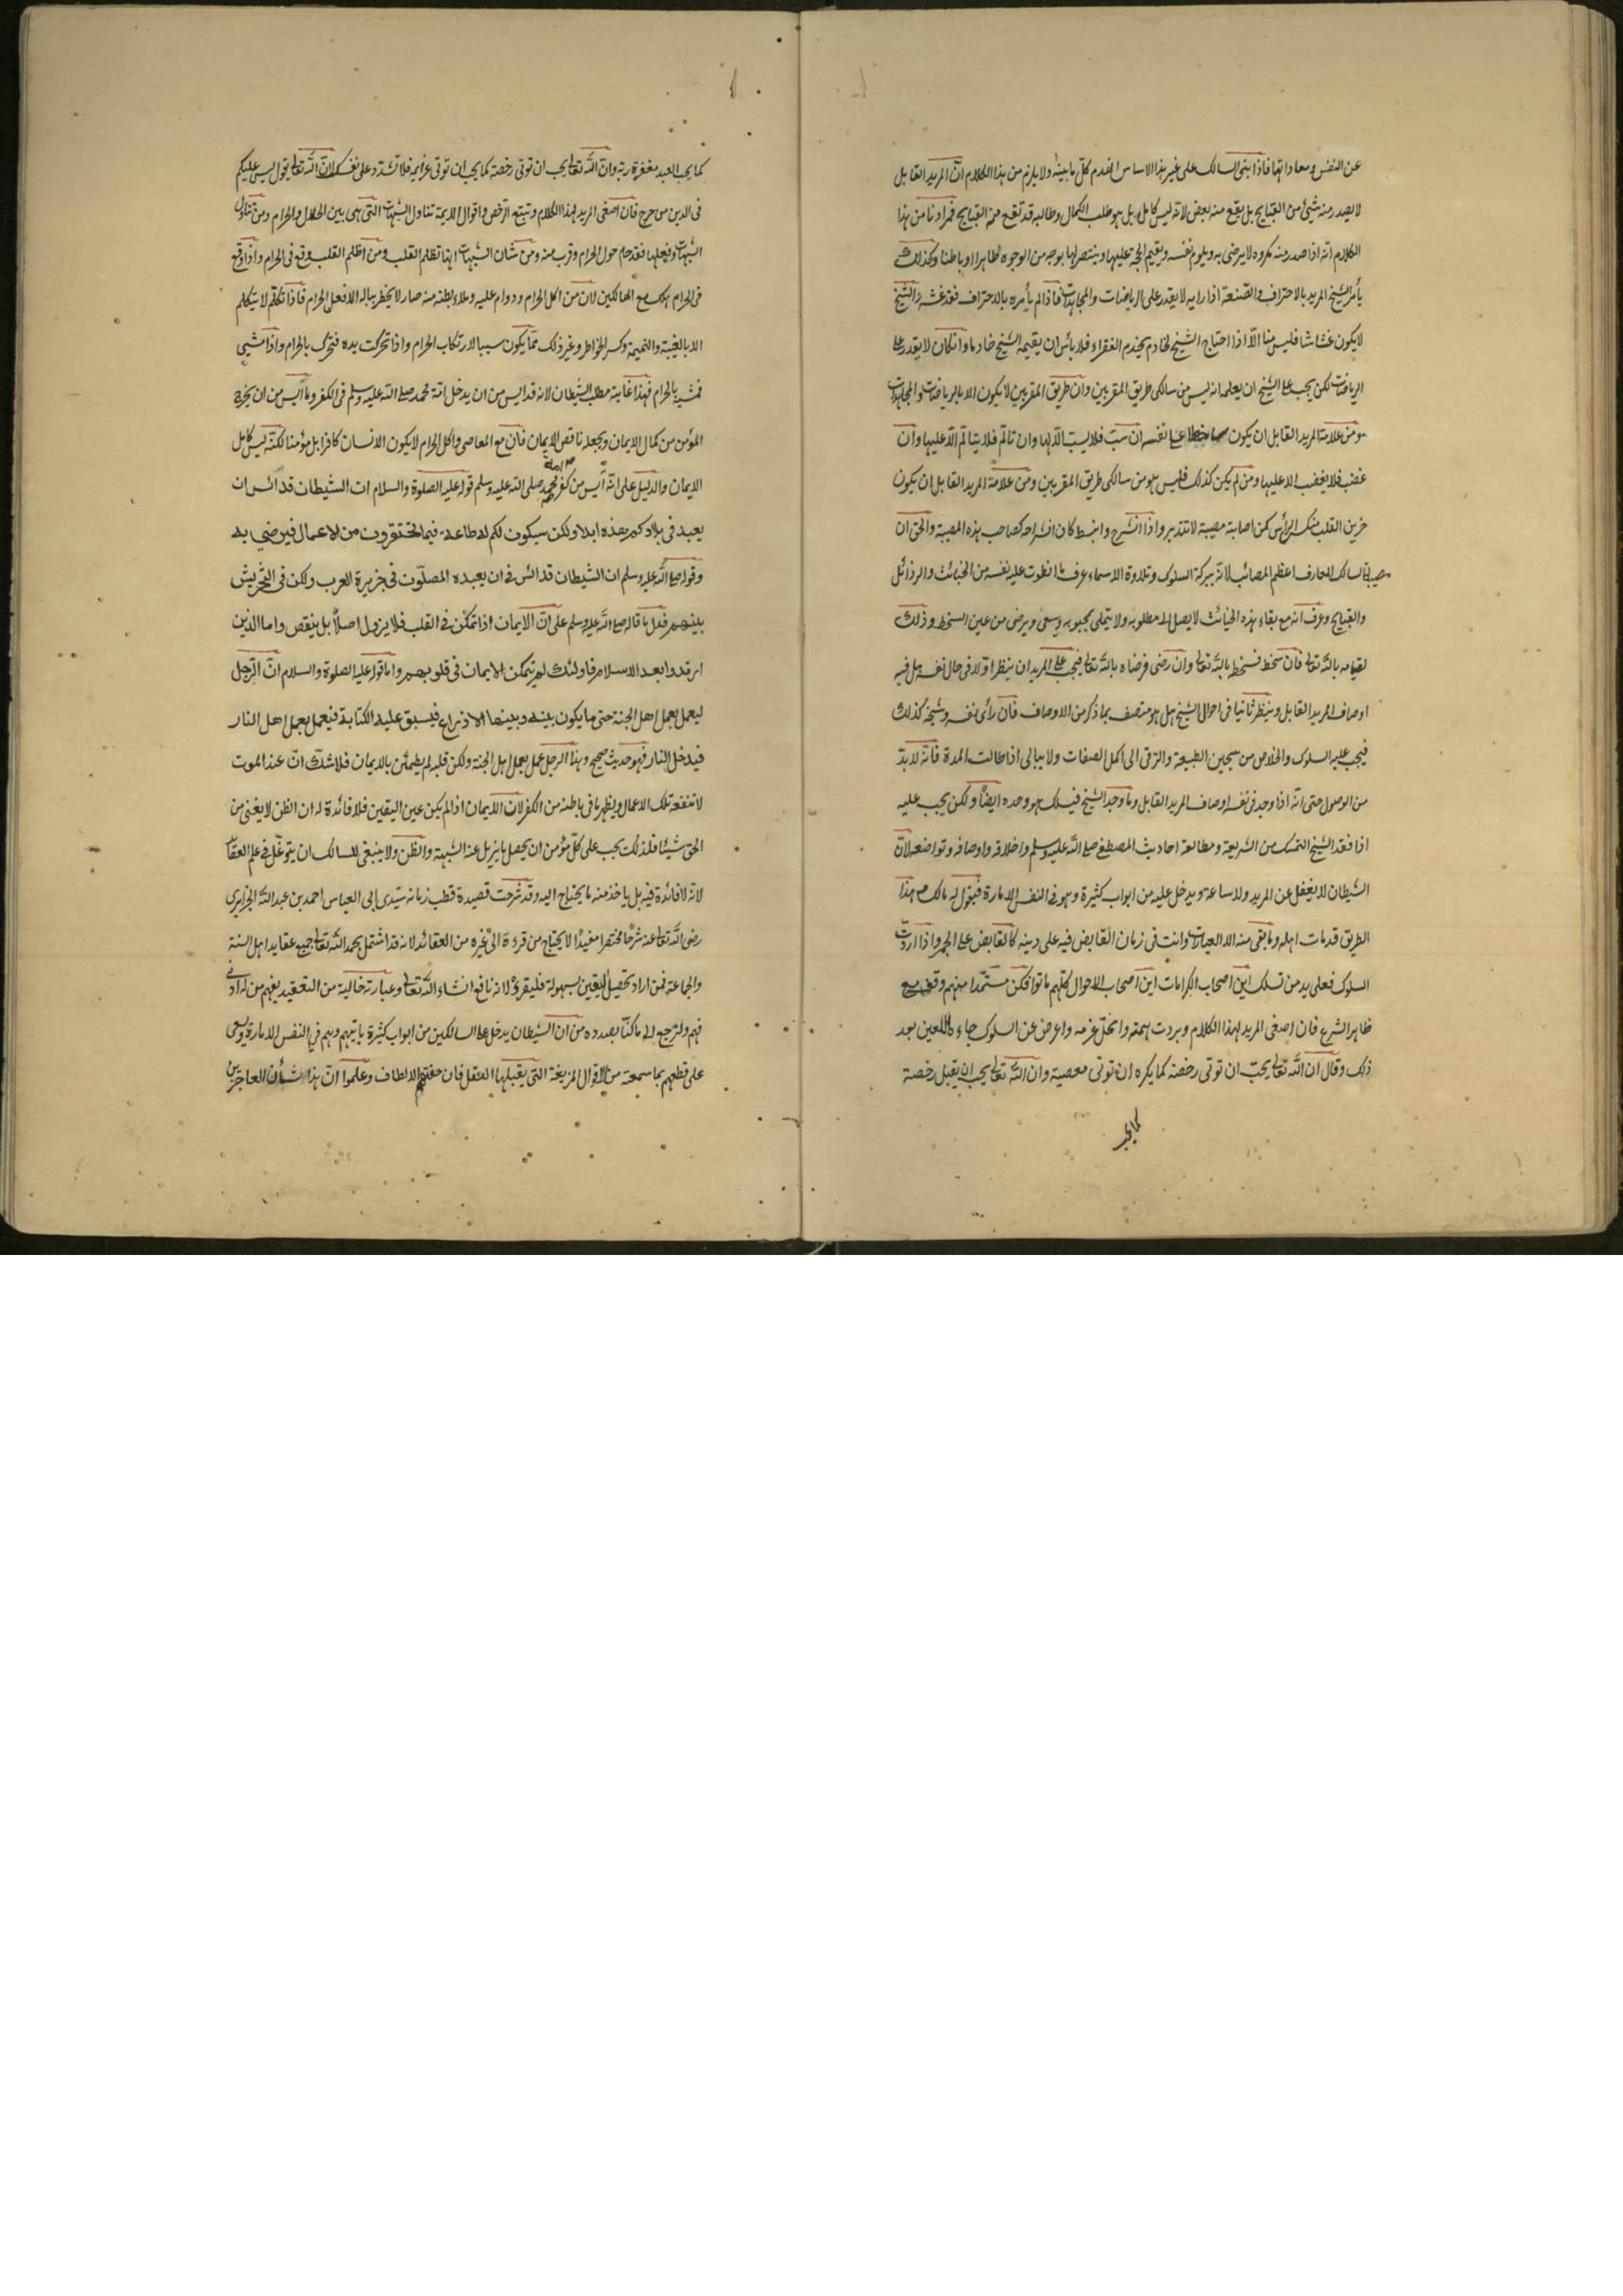 عن النفس ومعاداتها فاذا بنى السالك على غير هذا الاساس انهدم كل ما بينه ولا يلزم من هذا الكلام ان المريد القابل
لا يصدر منه شيئ من القبايح بل يقع منه بعض لانه ليس كامل بل هو طلب الكمال وطالبه قد تقع منه القبايح فمرادنا من هذا
الكلام انه اذا صدر منه مكروه لا يرضى به ويلوم نفسه ويقيم الحجة عليها ولا ينتصر لها بوجه من الوجوه ظاهرا او باطنا وكذلك
يأمر الشيخ المريد بالاحتراف والصنعة اذا رايه لا يقدر على الرياضات والمجاهدات فاذا لم يأمره بالاحتراف فقد غشه والشيخ
لا يكون غشاشا فليس منا الا اذا احتاج الشيخ لخادم يخدم الفقراء فلا بأس ان يقيمه الشيخ خادما وان كان لا يقدر على
الرياضات لكن يجب على الشيخ ان يعلمه انه ليس من سالكى طريق المقربين وان طريق المقربين لا يكون الا بالرياضات والمجاهدات
ومن علامة المريد القابل ان يكون ساخطا على نفسه ان سبت فلا يسبت الا لها وان تالم فلا يتالم الا عليها وان
غضب فلا يغضب الا عليها ومن لم يكن كذلك فليس هو من سالكى طريق المقربين ومن علامة المريد القابل ان يكون
حزين القلب منكس الرأس كمن اصابة مصيبة لا تتدبر واذا انشرح وانبسط كان انشراحه كصاحب هذه المصيبة والحق ان
مصيبة السالك العارف اعظم المصائب لانه ببركة السلوك وتلاوة الاسماء عرف ما انطوت عليه نفسه من الخبائث والرذائل
والقبايح وعرف انه مع بقاء هذه الخبائث لا يصل الى مطلوبه ولا يتملى بمحبوبه وسعى ويرضى من عين السخط وذلك
لقيامه بالله تعالى فان سخط فسخطه بالله تعالى وان رضى فرضاه بالله تعالى فيجب على المريد ان ينظر اولا فى حال نفسه هل فيه
اوصاف المريد القابل وينظر ثانيا فى احوال الشيخ هل هو متصف بما ذكر من الاوصاف فان رأى نفسه وشيخه كذلك
فيجب عليه السلوك والخلاص من سجين الطبيعة والترقى الى اكمل الصفات ولا يبالى اذا طالت المدة فانه لا بد
من الوصول حتى انه اذا وجد فى نفسه اوصاف المريد القابل وما وجد الشيخ فيسلك هو وحده ايضا ولكن يجب عليه
اذا فقد الشيخ التمسك من الشريعة ومطالعة احاديث المصطفى صلى الله عليه وسلم واخلاقه واوصافه وتواضعه لان
الشيطان لا يغفل عن المريد ولا ساعة ويدخل عليه من ابواب كثيرة وهو فى النفس الامارة فيقول له مالك هذا
الطريق قد مات اهله وما بقى منه الا العبارات وانت فى زمان القابض فيه على دينه كالقابض على الجمر واذا اردت
السلوك فعلى يد من تسلك اين اصحاب الكرامات اين اصحاب الاحوال كلهم ماتوا فكن مستمدا منهم وقف مع
ظاهر الشرع فان اصغى المريد لهذا الكلام وبردت همته وانحل عزمه واعرض عن السلوك جاءه اللعين بعد
ذلك وقال ان الله تعالى يحب ان توتى رخصه كما يكره ان توتى معصية وان الله تعالى يحب ان يقبل رخصة
كما يحب
كما يحب العبد مغفرة ربه وان الله تعالى يحب ان توتى رخصة كما يحب ان توتى عزايمه فلا تشدد على نفسك لان الله تعالى يقول ليس عليكم
فى الدين من حرج فان اصغى المريد لهذا الكلام وتتبع الرخص واقوال الايمة تناول الشبهات التى هى بين الحلال والحرام ومن تناول
الشبهات وفعلها فقد حام حول الحرام وقرب منه ومن شان الشبهات انها تظلم القلب ومن اظلم القلب وقع فى الحرام واذا وقع
فى الحرام هلك مع الهالكين لان من اكل الحرام ودوام عليه وملاء بطنه منه صار لا يخطر بباله الا فعل الحرام فاذا تكلم لا يتكلم
الا بالغيبة والنميمة وكسر الخواطر وغير ذلك مما يكون سببا لارتكاب الحرام واذا تحركت يده فتحرك بالحرام واذا مشى
فمشيه بالحرام فهذا غاية مطلب الشيطان لانه قد ايس من ان يدخل امة محمد صلى الله عليه وسلم فى الكفر وما آيس من ان يخرج
المؤمن من كمال الايمان ويجعله ناقص الايمان فان مع المعاصى واكل الحرام لا يكون الانسان كافرا بل مؤمنا لكنه ليس كامل
الايمان والدليل على انه آيس من كفر امة محمد صلى الله عليه وسلم قوله عليه الصلوة والسلام ان الشيطان قد ائس ان
يعبد فى بلادكم هذه ابدا ولكن سيكون لكم له طاعة فيما تحتقرون من الاعمال فيرضى به
وقوله صلى الله عليه وسلم ان الشيطان قد ائس فى ان يعبده المصلون فى جزيرة العرب ولكن فى التحريش
بينهم فدل ما قاله صلى الله عليه وسلم على ان الايمان اذا تمكن فى القلب فلا يزول اصلا بل ينقص واما الذين
ارتدوا بعد الاسلام فاولئك لم يتمكن الايمان فى قلوبهم واما قوله عليه الصلوة والسلام ان الرجل
ليعمل بعمل اهل الجنة حتى ما يكون بينه وبينها الا ذراع فيسبق عليه الكتابة فيعمل بعمل اهل النار
فيدخل النار فهو حديث صحيح وهذا الرجل عمل بعمل اهل الجنة ولكن قلبه لم يطمئن بالايمان فلا شك ان عند الموت
لا تنفعه تلك الاعمال ويظهر ما فى باطنه من الكفر لان الايمان اذا لم يكن عين اليقين فلا فائدة له ان الظن لا يغنى من
الحق شيئا فلذلك يجب على كل مؤمن ان يحصل ما يزيل عنه الشبهة والظن ولا ينبغى للسالك ان يتوغل فى علم العقائد
لانه لا فائدة فيه بل ياخذ منه ما يحتاج اليه وقد شرحت قصيدة قطب زمانه سيدى ابى العباس احمد بن عبد الله الجزايرى
رضى الله تعالى عنه شرحا مختصرا مفيدا لا يحتاج من قرءه الى غيره من العقائد لانه قد اشتمل بحمد الله تعالى جميع عقايد اهل السنة
والجماعة فمن اراد تحصيل اليقين بسهولة فليقرؤه لانه نافع انشاء الله تعالى وعبارته خالية من التعقيد يفهم من له ادنى
فهم ولنرجع الى ما كنا بصدده من ان الشيطان يدخل على السالكين من ابواب كثيرة ياتيهم وهم فى النفس الامارة ويسعى
على قطعهم بما سمعته من الاقوال المزيفة التى يقبلها العقل فان حفتهم الالطاف وعلموا ان هذا شأن العاجزين